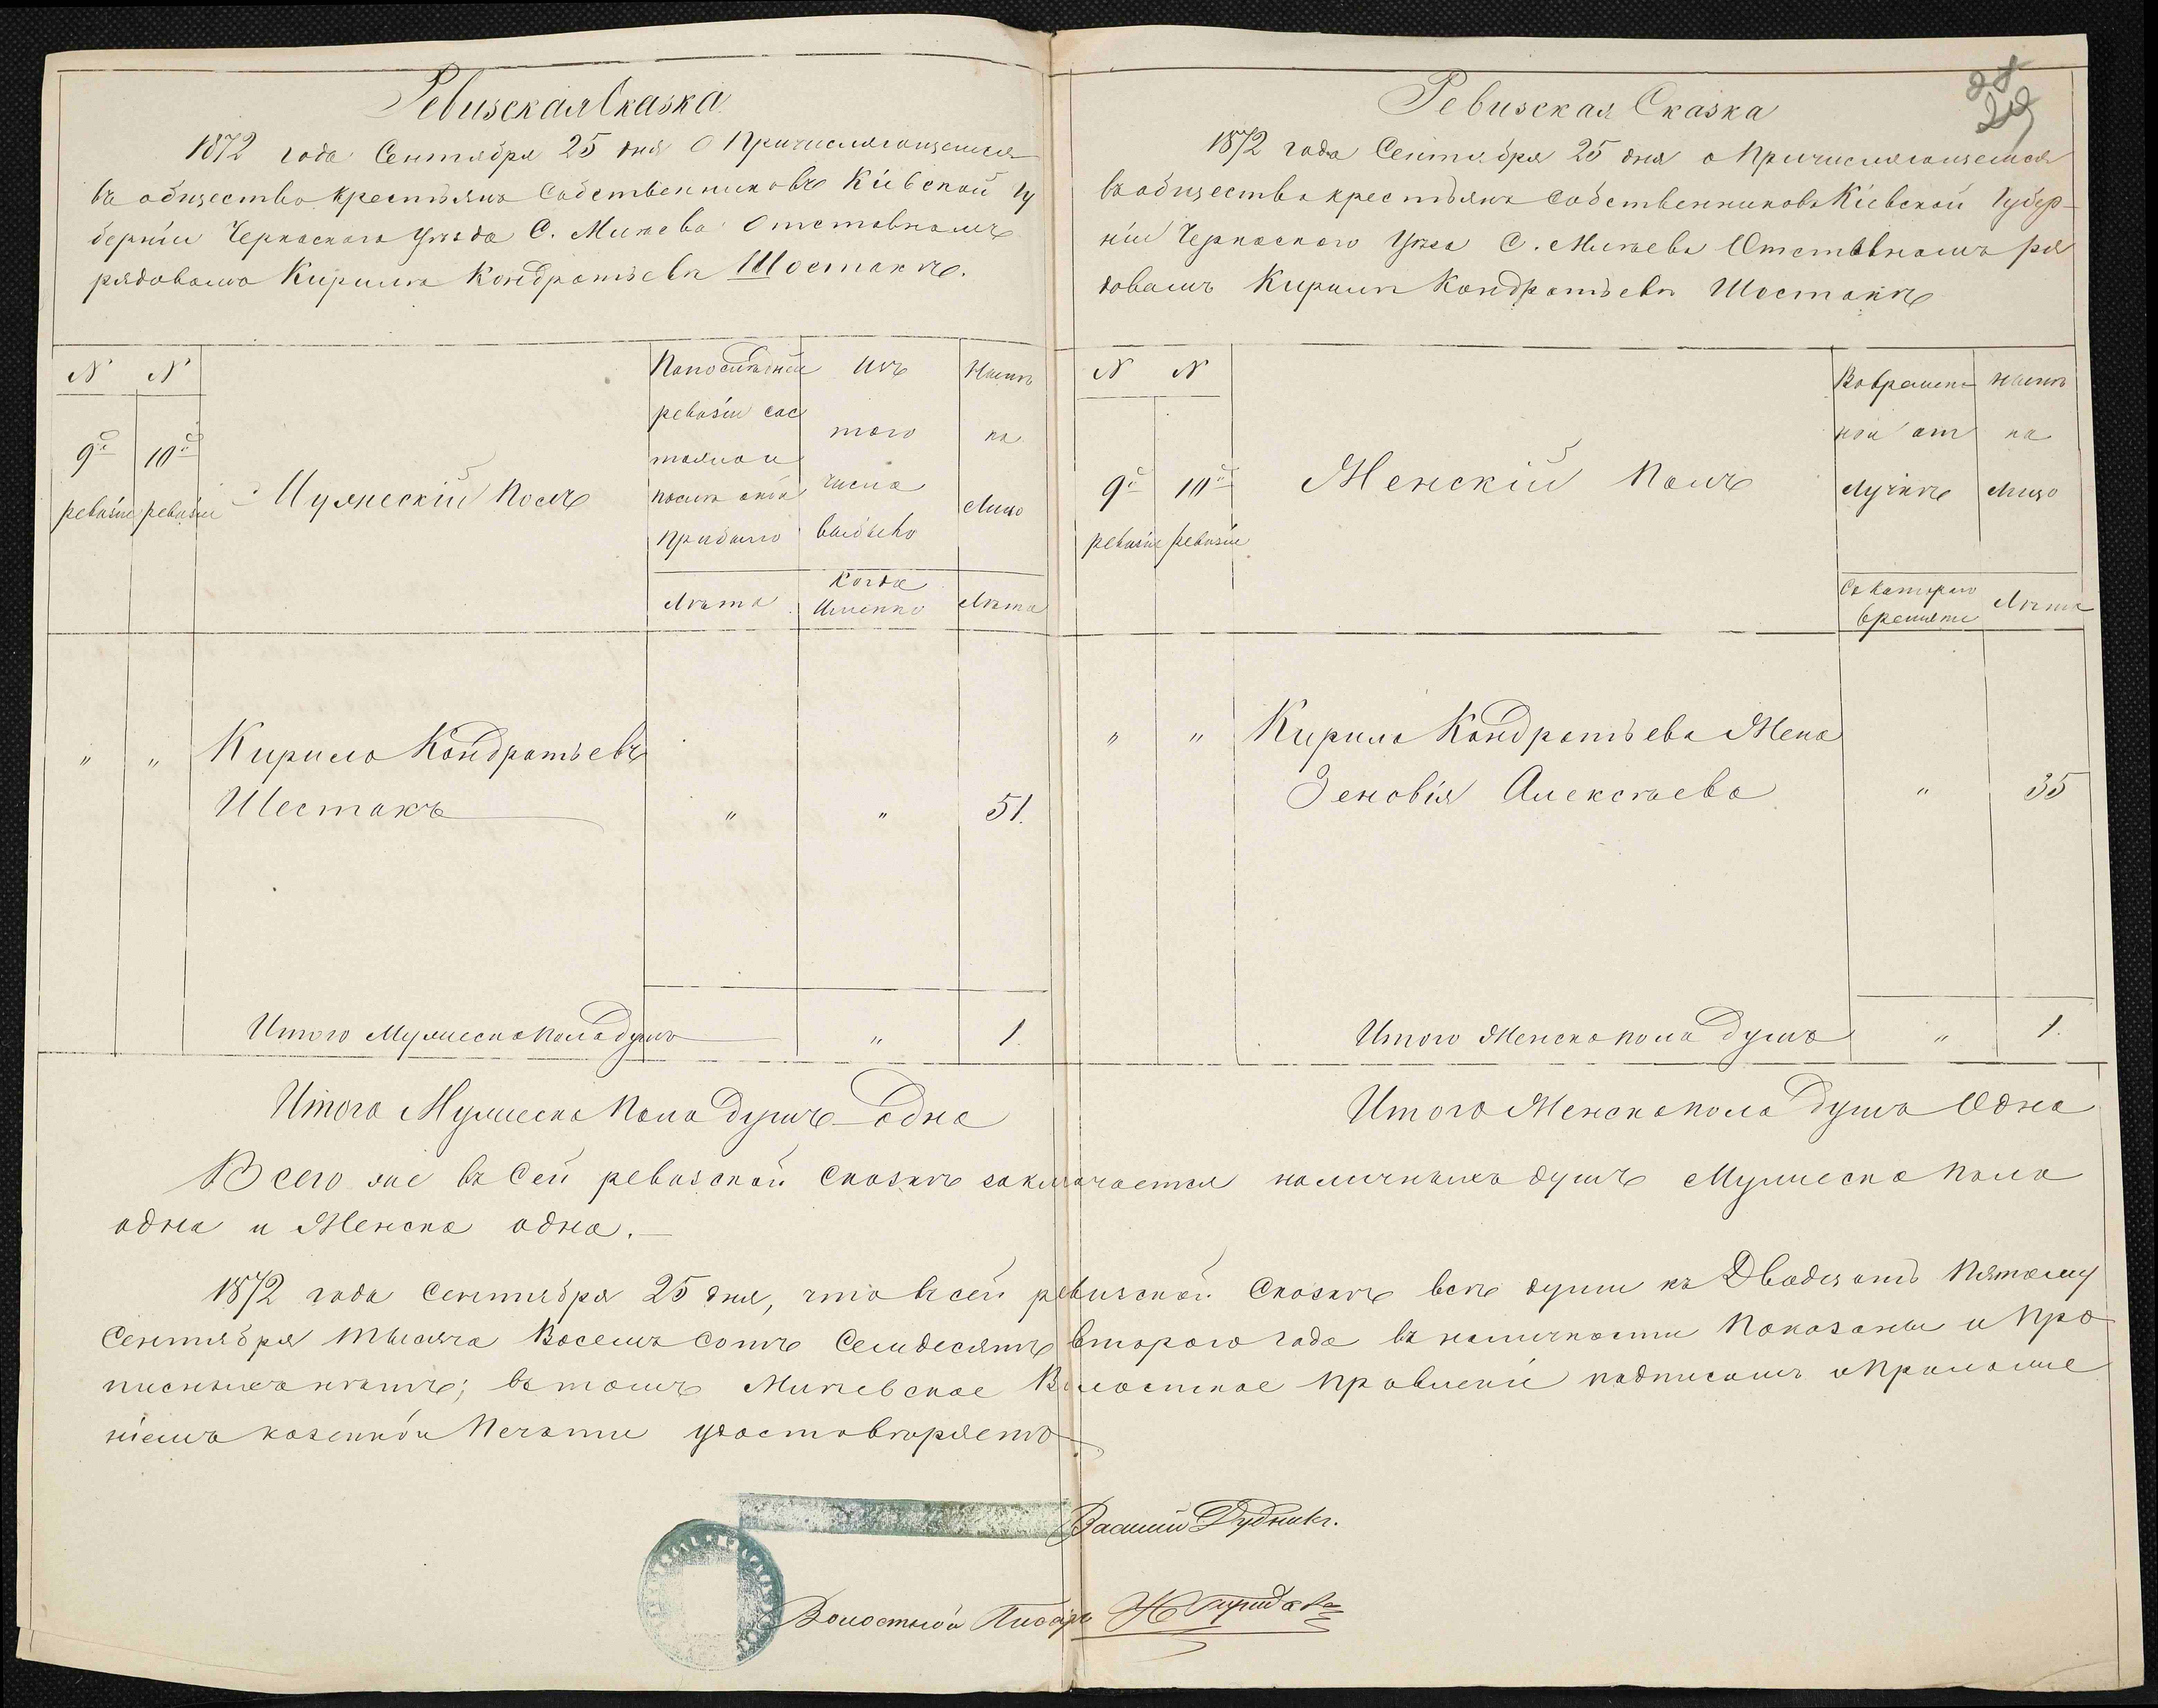 Ревизская Сказка
1872 года Сентября 25 дня О Причисляющемся
въ общество крестьянъ Собственниковъ Кіевской Гу
берніи Черкаского Уѣзда С. Млѣева Отставномъ
рядовомъ Кирилѣ Кондратьевѣ Шостакѣ.
N N
9й 10й
ревизіи ревизіи
Мужескій Полъ
Попослѣдней
ревизіи сос
тояло и
послѣ оной
Прибыло
Лѣта
Изъ
того
числа
выбыло
Когда
Именно
Нынѣ
на
Лицо
Лѣта
" " Кирило Кондратьевъ
Шестакъ " " 51.
Итого Мужеска пола душъ " 1.
Итого Мужеска Пола душъ Одна
Ревизская Сказка
28
29
1872 года Сентября 25 дня о Причисляющемся
въ общество крестьянъ Собственниковъ Кіевской Губер-
ніи Черкаского Уѣзда С. Млѣева Отставномъ ря
довомъ Кирилѣ Кондратьевѣ Шостакѣ
N N
9й 10й
ревизіи ревизіи
Женскій Полъ
Вовремен
ной от
лучкѣ
Съ котораго
времяни
Нынѣ
на
Лицо
Лѣта
" " Кирила Кондратьева Жена
Зеновія Алексѣева " 35
Итого Женска пола душъ " 1.
Итого Женска пола душъ Одна
Всего же въ Сей ревизской Сказкѣ заключается наличныхъ душъ Мужеска пола
одна и Женска одна.
1872 года Сентября 25 дня, что въ сей ревизской Сказкѣ всѣ души къ Двадцать Пятому
Сентября Тысяча Восемъ сотъ Семдесятъ второго года въ наличности Показаны и Про
писныхъ нѣтъ; въ томъ Млѣевское Волостное Правленіе подписомъ и Приложе
ніемъ казенной Печати удостовѣряетъ
Василій Дудникъ.
Волостной Писарь